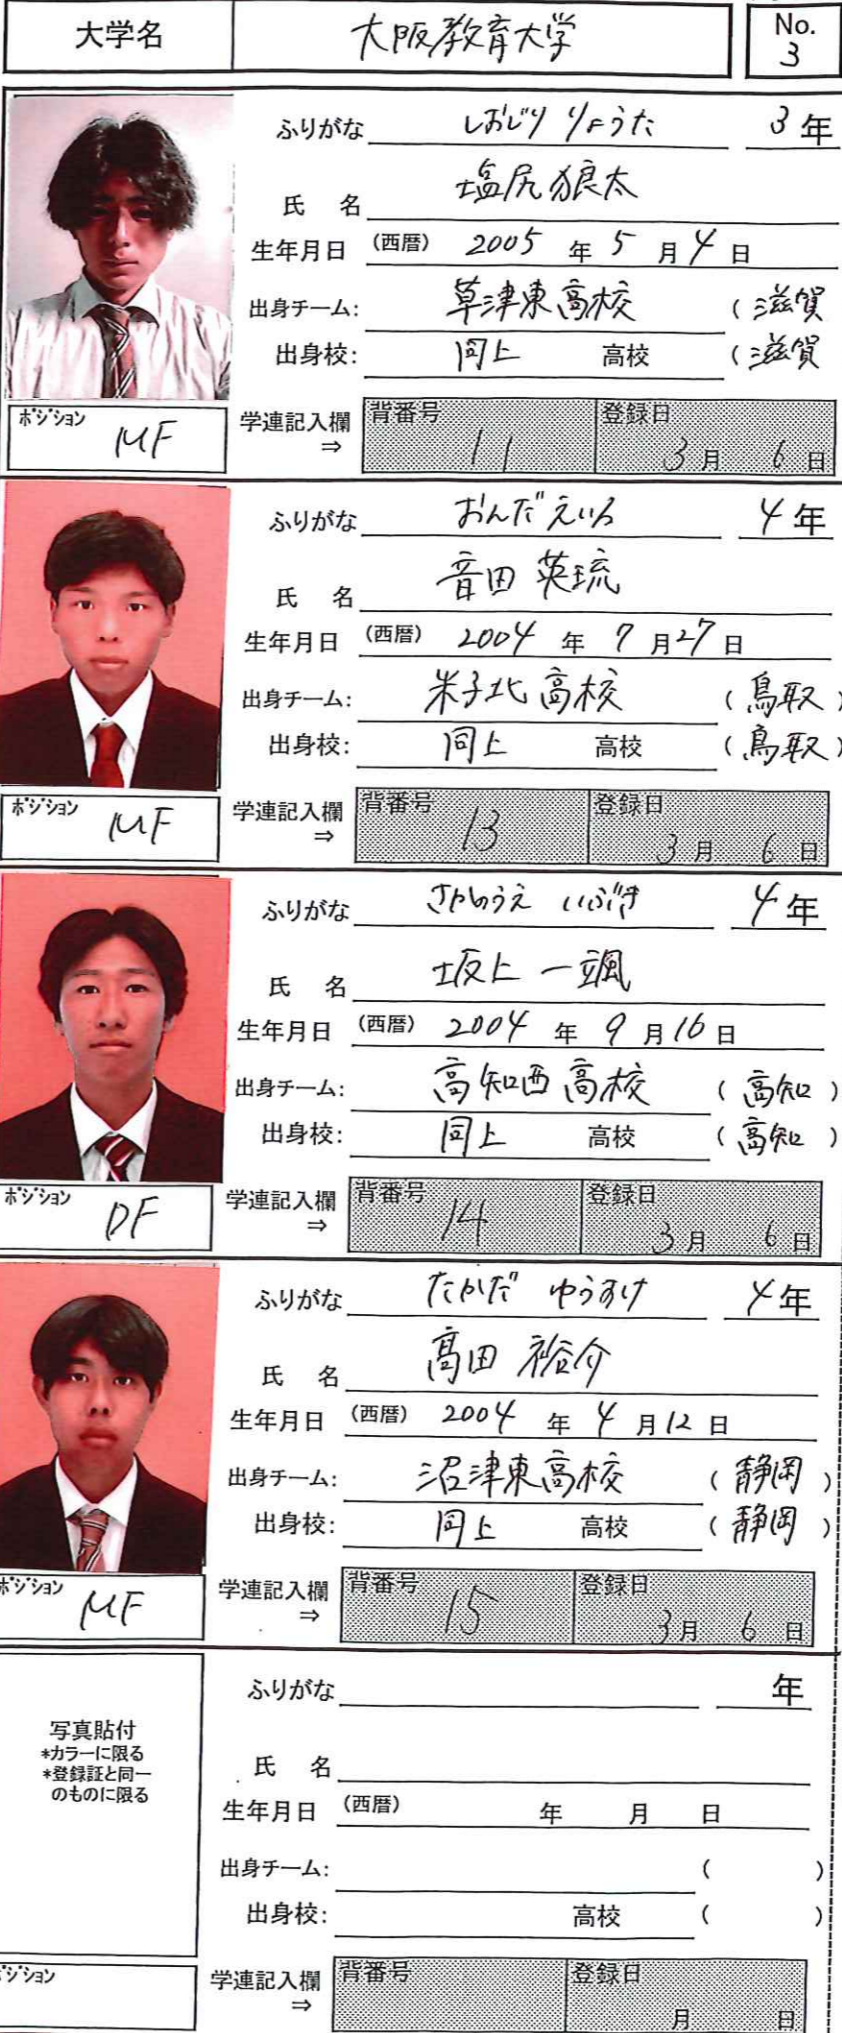 大学名 大阪教育大学 No. 3
ふりがな しおじり りょうた 3年
氏 名 塩尻 稂太
生年月日 (西暦) 2005 年 5 月 4 日
出身チーム: 草津東高校 (滋賀
出身校: 同上 高校 (滋賀
ポジション MF 学連記入欄 ⇒ 背番号 11 登録日 3月 6日
ふりがな おんだ えいる 4年
氏 名 音田 英琉
生年月日 (西暦) 2004 年 7 月 27 日
出身チーム: 米子北高校 (鳥取)
出身校: 同上 高校 (鳥取)
ポジション MF 学連記入欄 ⇒ 背番号 13 登録日 3月 6日
ふりがな さかのうえ いぶき 4年
氏 名 坂上 一颯
生年月日 (西暦) 2004 年 9 月 16 日
出身チーム: 高知西高校 (高知)
出身校: 同上 高校 (高知)
ポジション DF 学連記入欄 ⇒ 背番号 14 登録日 3月 6日
ふりがな たかだ ゆうすけ 4年
氏 名 髙田 裕介
生年月日 (西暦) 2004 年 4 月 12 日
出身チーム: 沼津東高校 (静岡)
出身校: 同上 高校 (静岡)
ポジション MF 学連記入欄 ⇒ 背番号 15 登録日 3月 6日
写真貼付
*カラーに限る
*登録証と同一
のものに限る
ふりがな 年
氏 名
生年月日 (西暦) 年 月 日
出身チーム: ( )
出身校: 高校 ( )
ポジション 学連記入欄 ⇒ 背番号 登録日 月 日